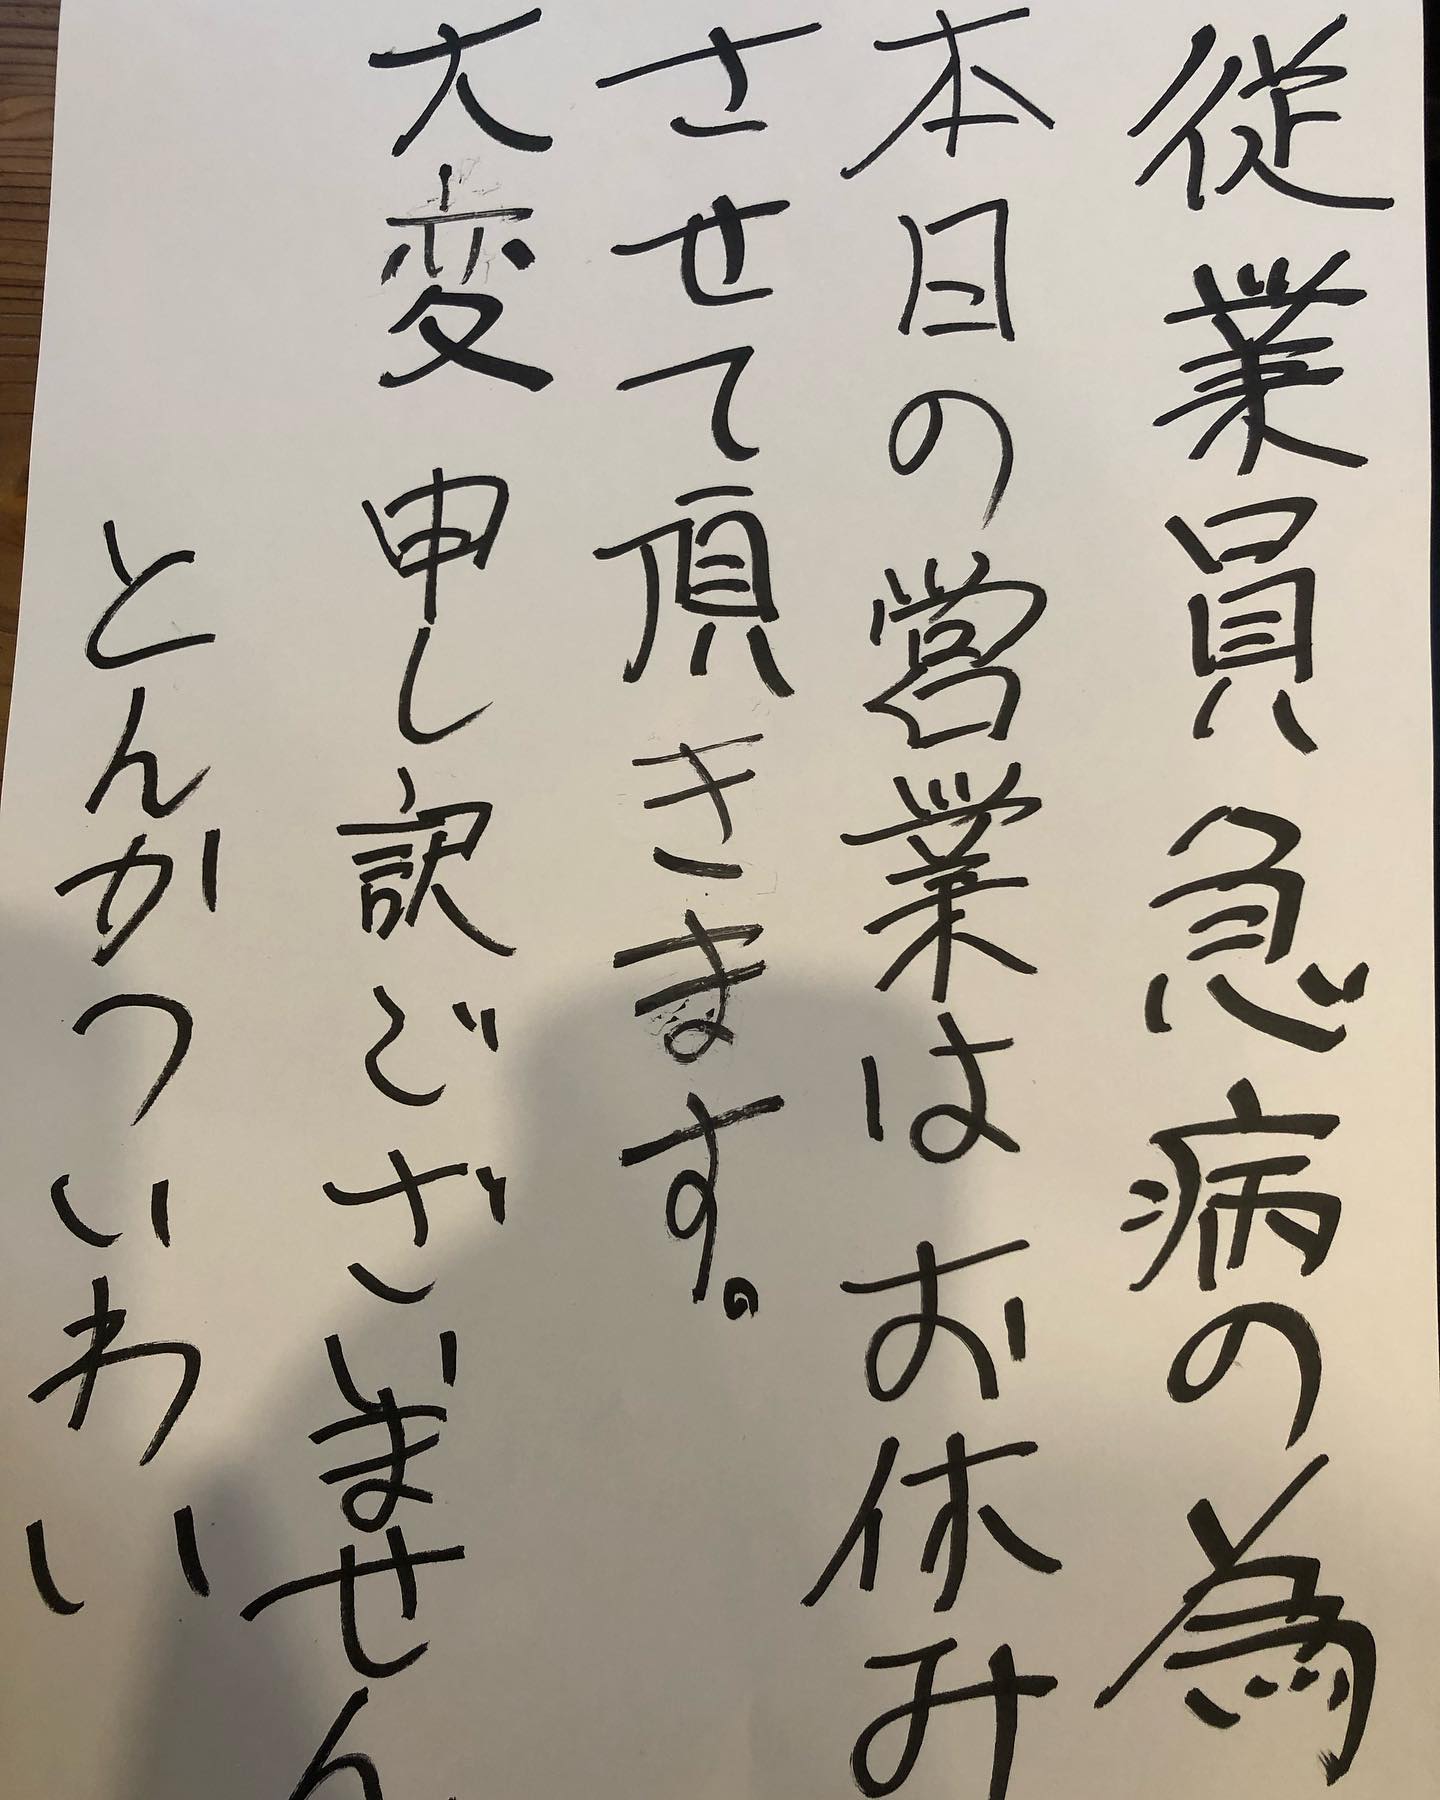 従業員急病の為
本日の営業はお休み
させて頂きます。
大変申し訳ございません
とんかついわい